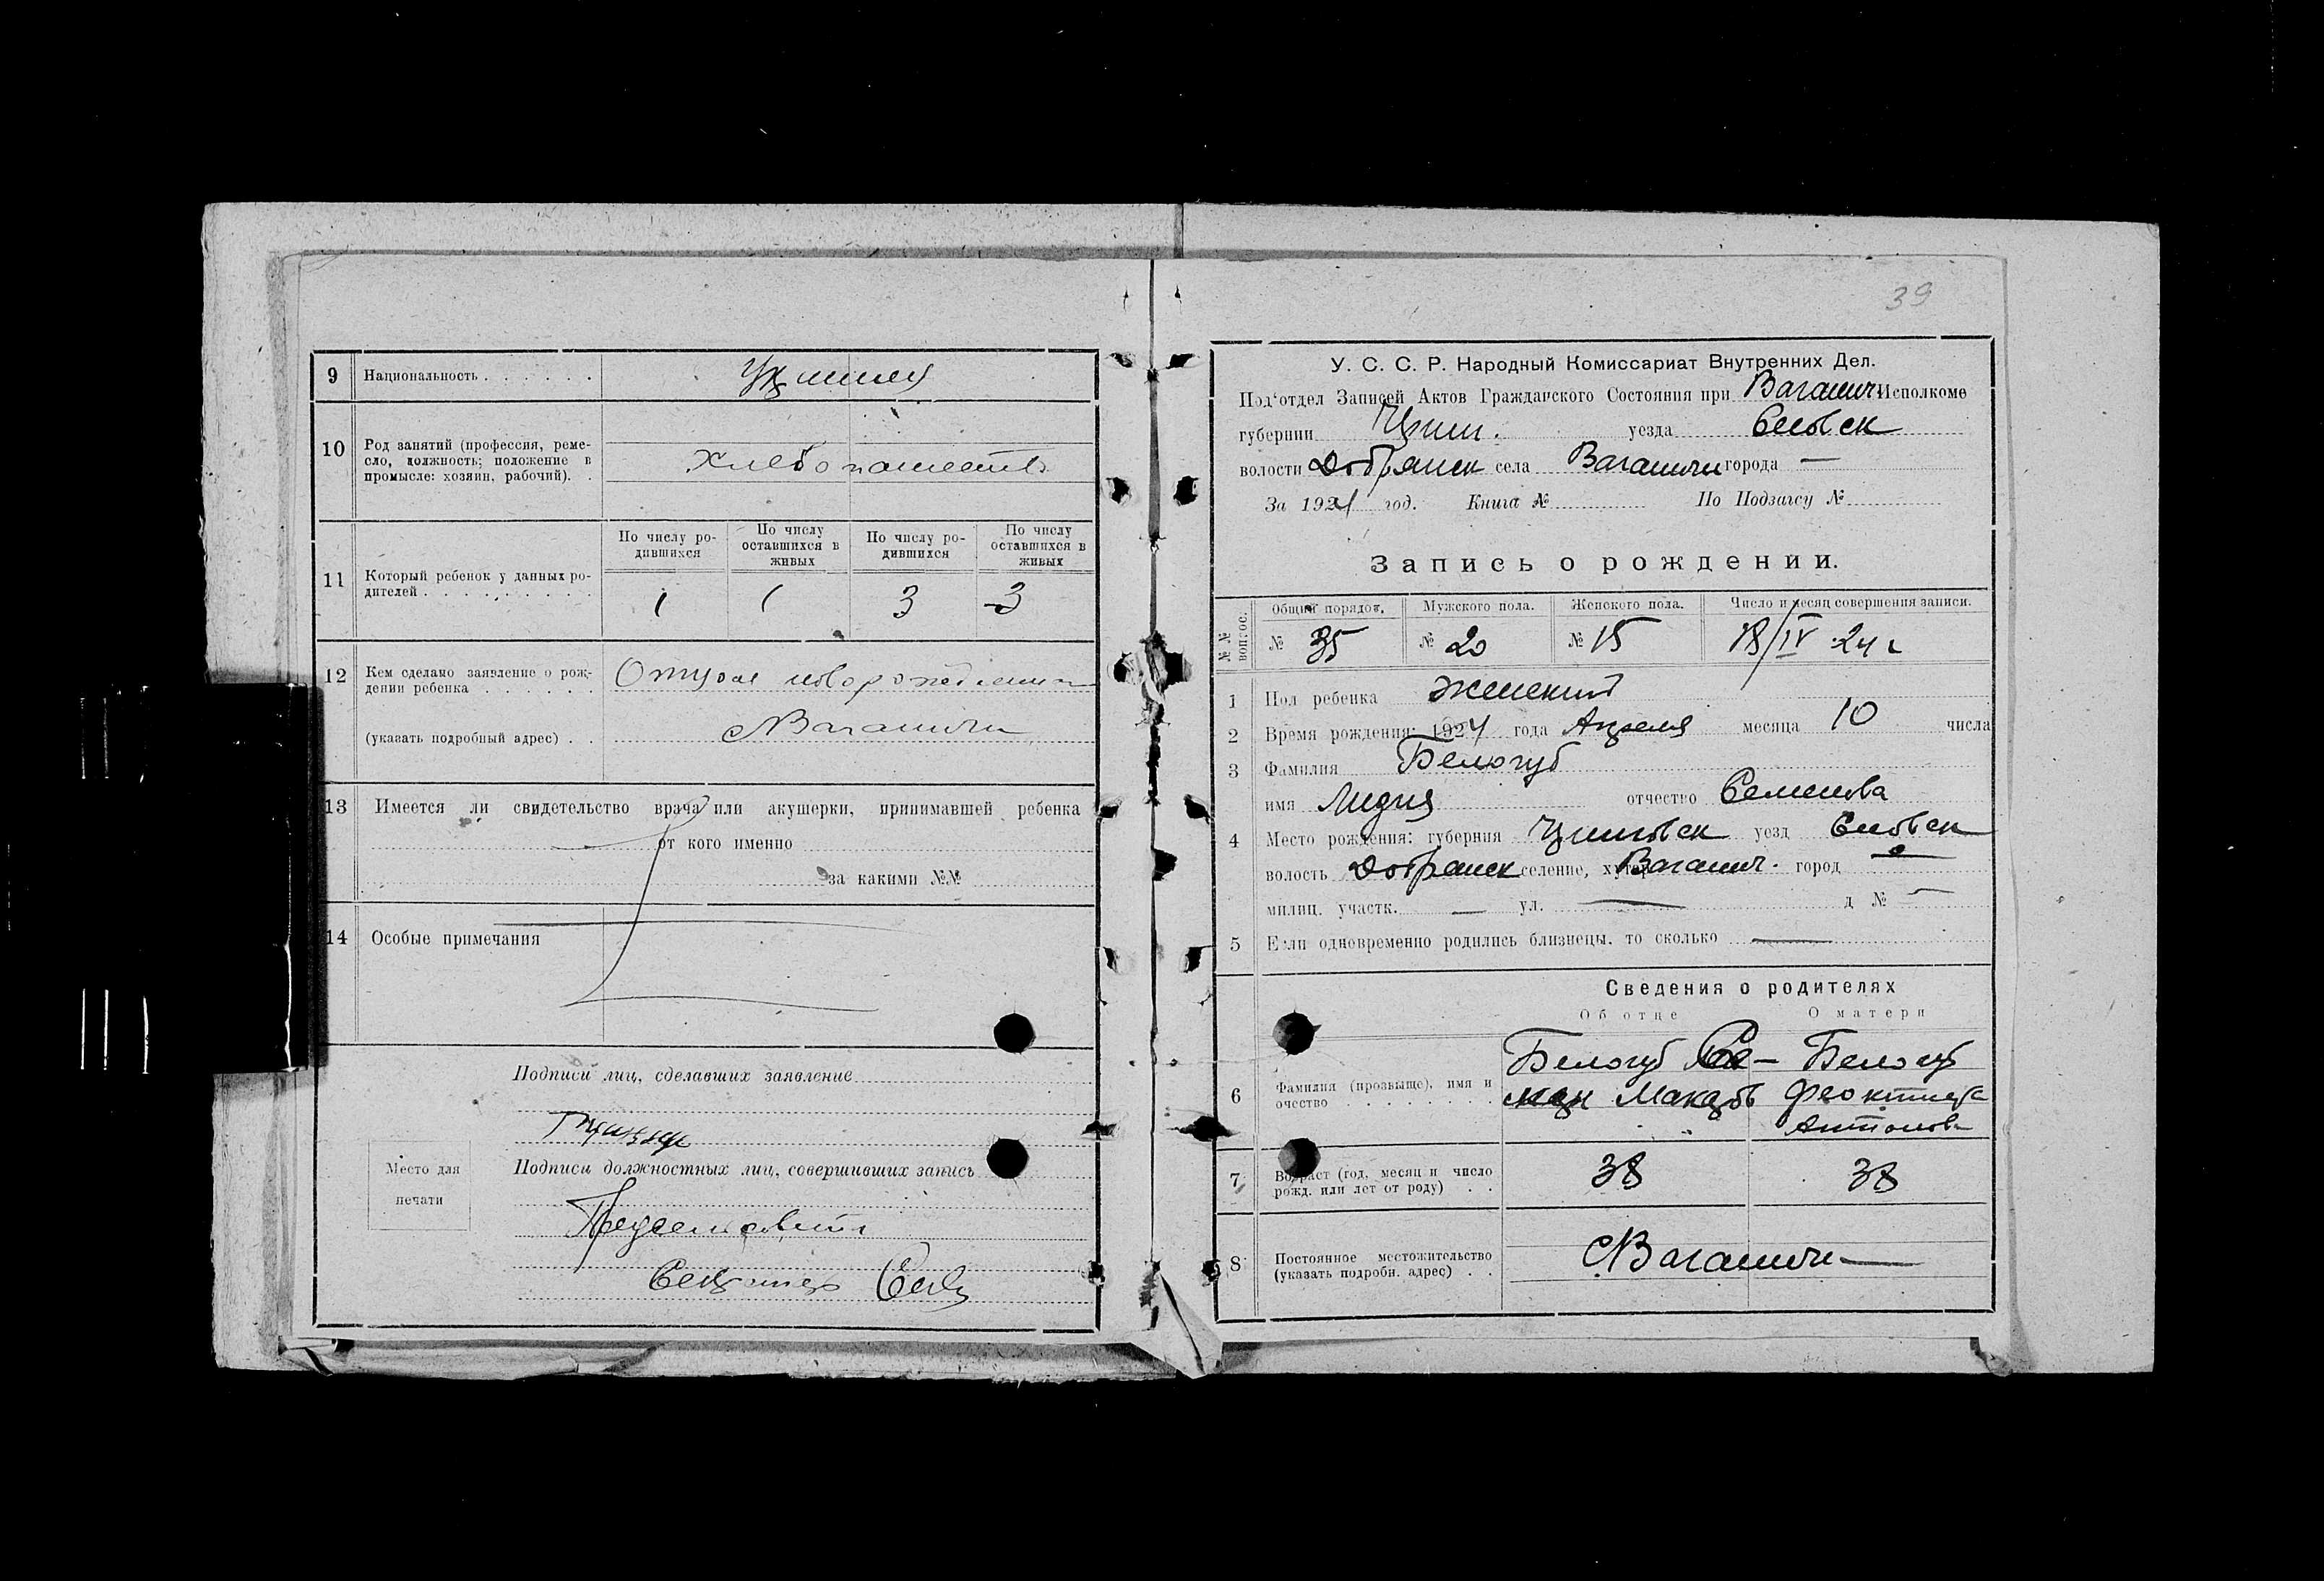 9 Национальность . . . . . .
10 Род занятий (профессия, реме-
сло, должность; положение в
промысле: хозяин, рабочий). .
Хлебопашество
11 Который ребенок у данных ро-
дителей . . . . . . . . .
По числу ро-
дившихся
По числу
оставшихся в
живых
По числу ро-
дившихся
По числу
оставшихся в
живых
1 1 3 3
12 Кем сделано заявление о рож-
дении ребенка . . . . . .
Отцом новорожденной
(указать подробный адрес) . .
с Ваганичи
13 Имеется ли свидетельство врача или акушерки, принимавшей ребенка
от кого именно
за какими №№
14 Особые примечания
Подписи лиц, сделавших заявление
Место для
печати
Подписи должностных лиц, совершивших запись
Предсельсовета
Секретарь
39
У. С. С. Р. Народный Комиссариат Внутренних Дел.
Под'отдел Записей Актов Гражданского Состояния при Ваганич Исполкоме
губернии уезда Сновск
волости Добрянск села Ваганичи города —
За 1924 год. Книга № По Подзагсу №
Запись о рождении.
№ № вопрос.
Общий порядок. Мужского пола. Женского пола. Число и месяц совершения записи.
№ 35 № 20 № 15 18/IV 24 г
1 Пол ребенка женский
2 Время рождения: 1924 года Апреля месяца 10 числа
3 Фамилия Белогуб
имя Лидия отчество Семенова
4 Место рождения: губерния уезд Сновск
волость Добрянск селение, хутор Ваганич. город —
милиц. участк. — ул. — д № —
5 Если одновременно родились близнецы, то сколько —
Сведения о родителях
Об отце О матери
6 Фамилия (прозвище), имя и
очество . . . . . . . .
Белогуб Се-
мен Макаров
Белогуб
Феоктиста
Антонов
7 Возраст (год, месяц и число
рожд. или лет от роду) . .
38 38
8 Постоянное местожительство
(указать подробн. адрес) . .
с Ваганичи